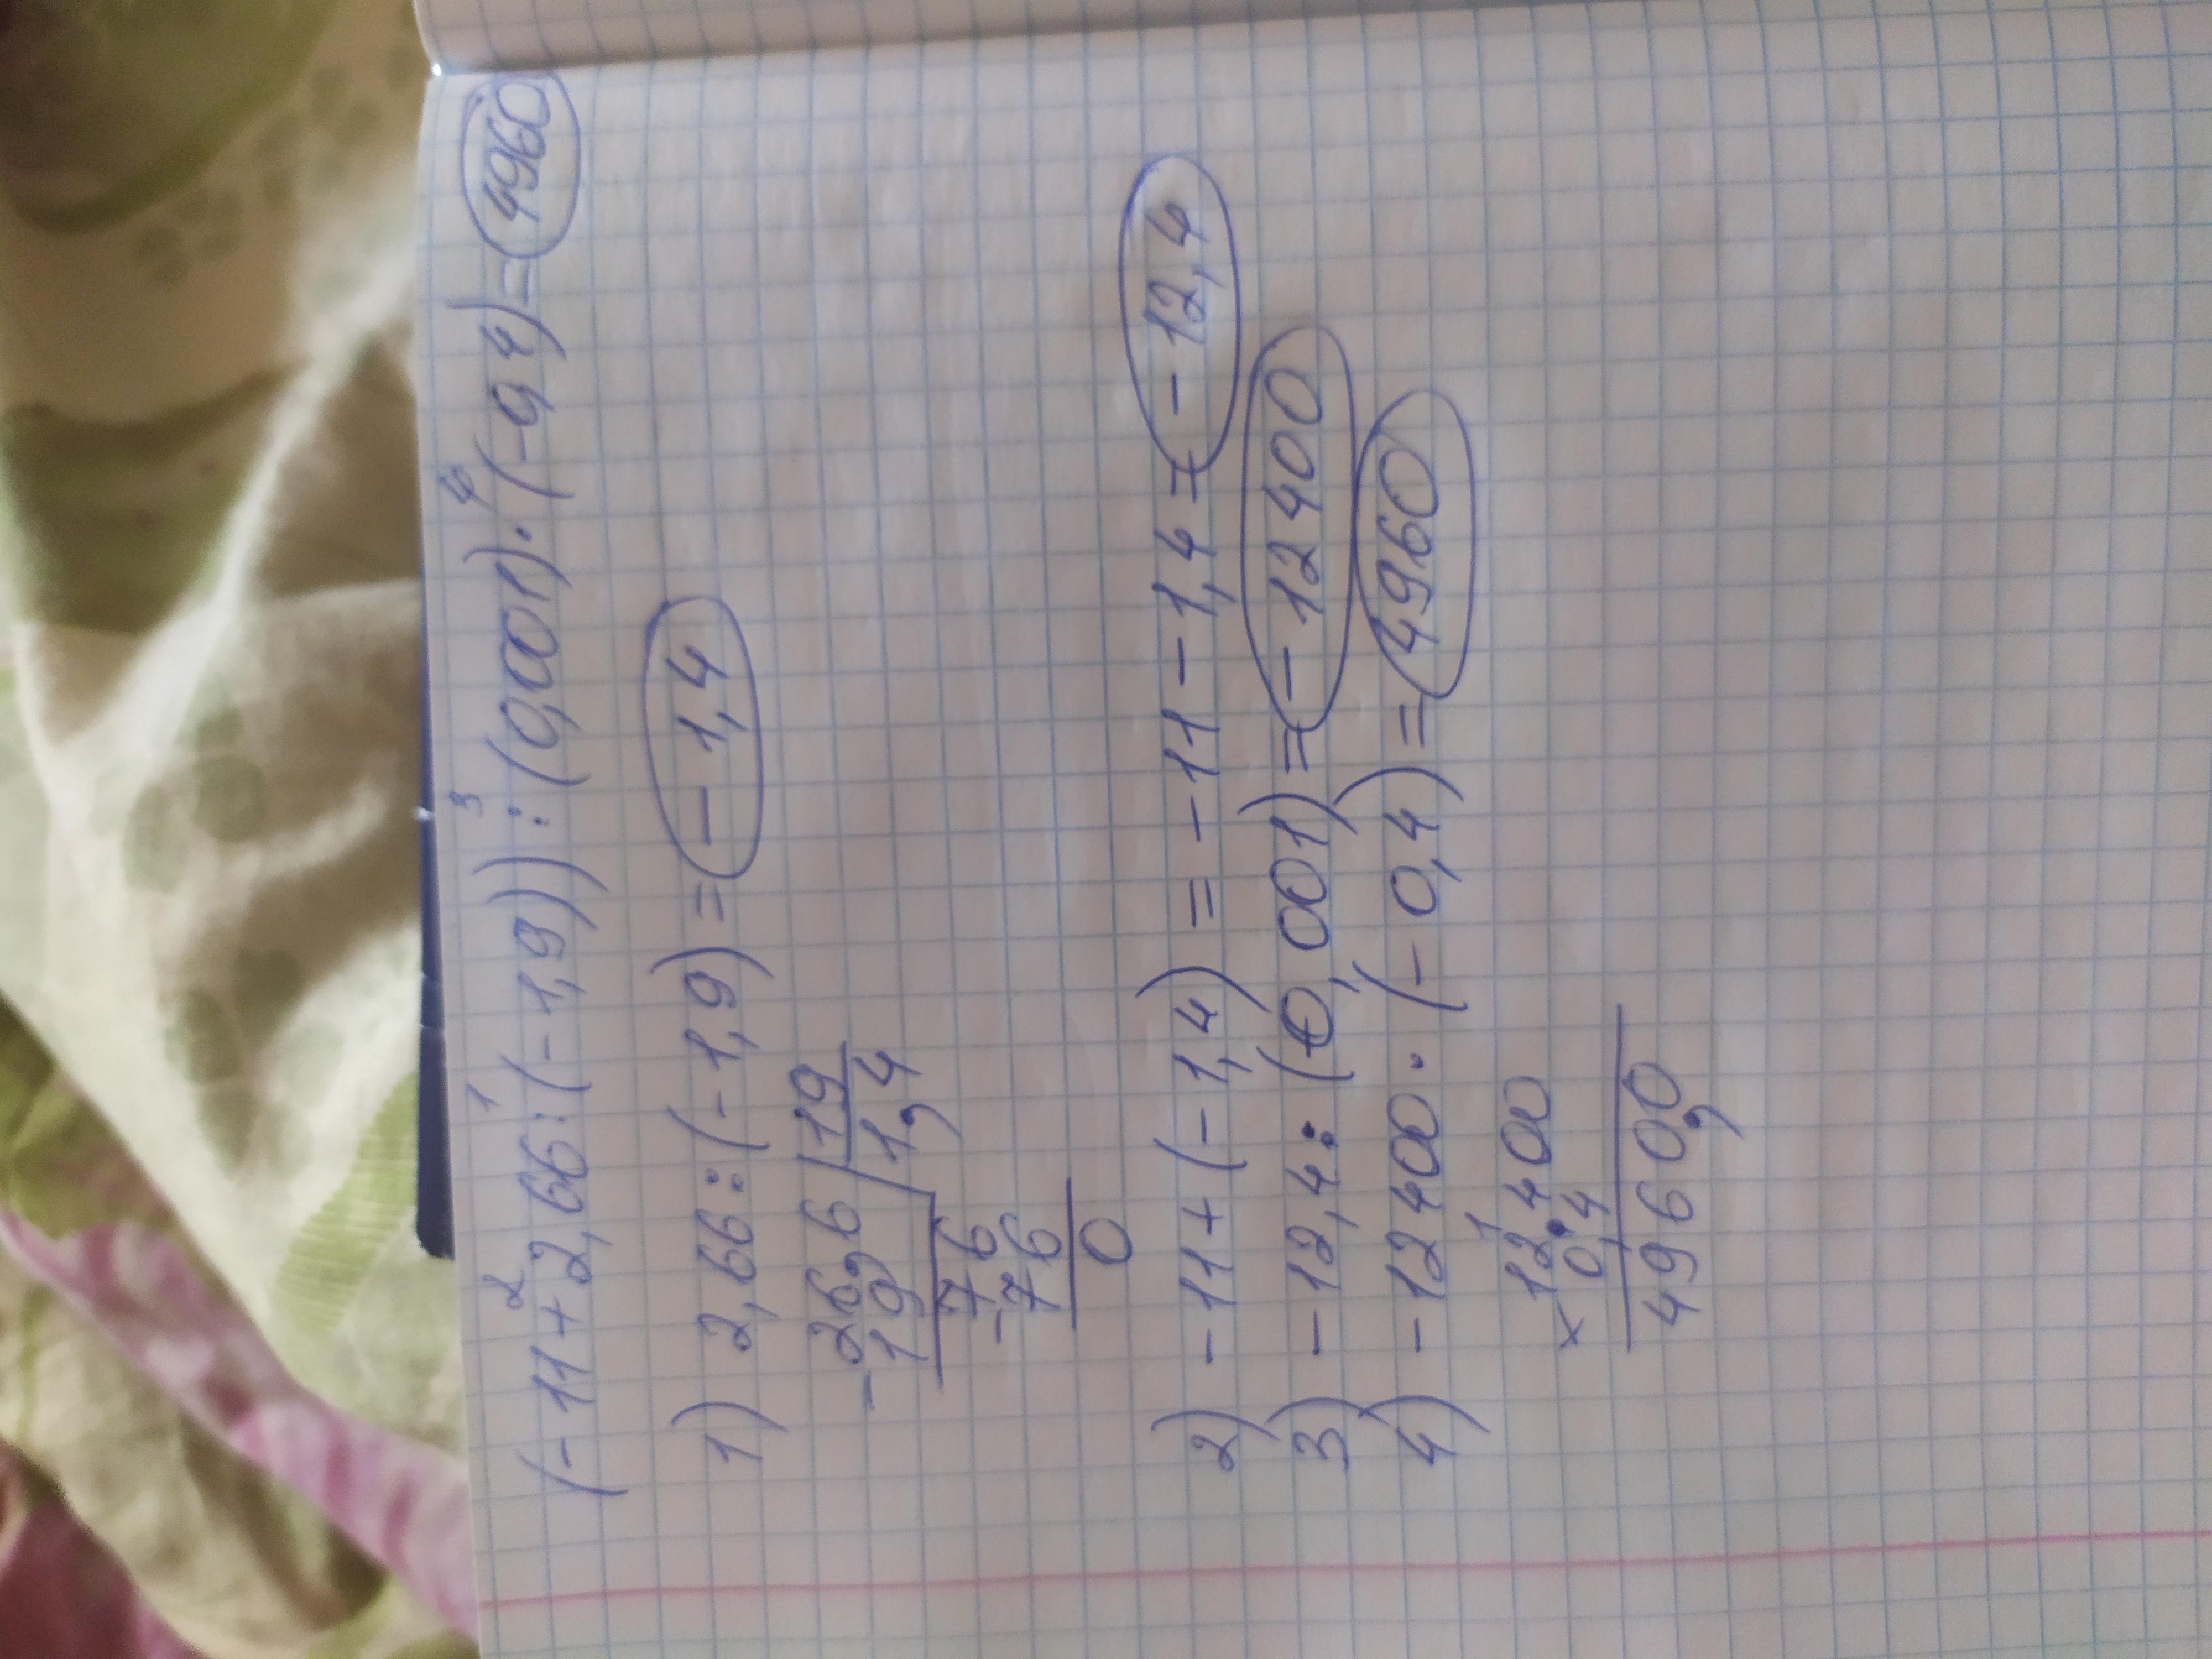 (-11+2,66:(-1,9)):(0,001)·(-0,4)=4960
2 1 3 4
1) 2,66:(-1,9)=-1,4
-26,6 19
19 1,4
76
-76
0
2) -11+(-1,4)=-11-1,4=-12,4
3) -12,4:(0,001)=-12400
4) -12400·(-0,4)=4960
1
×12400
0,4
4960,0